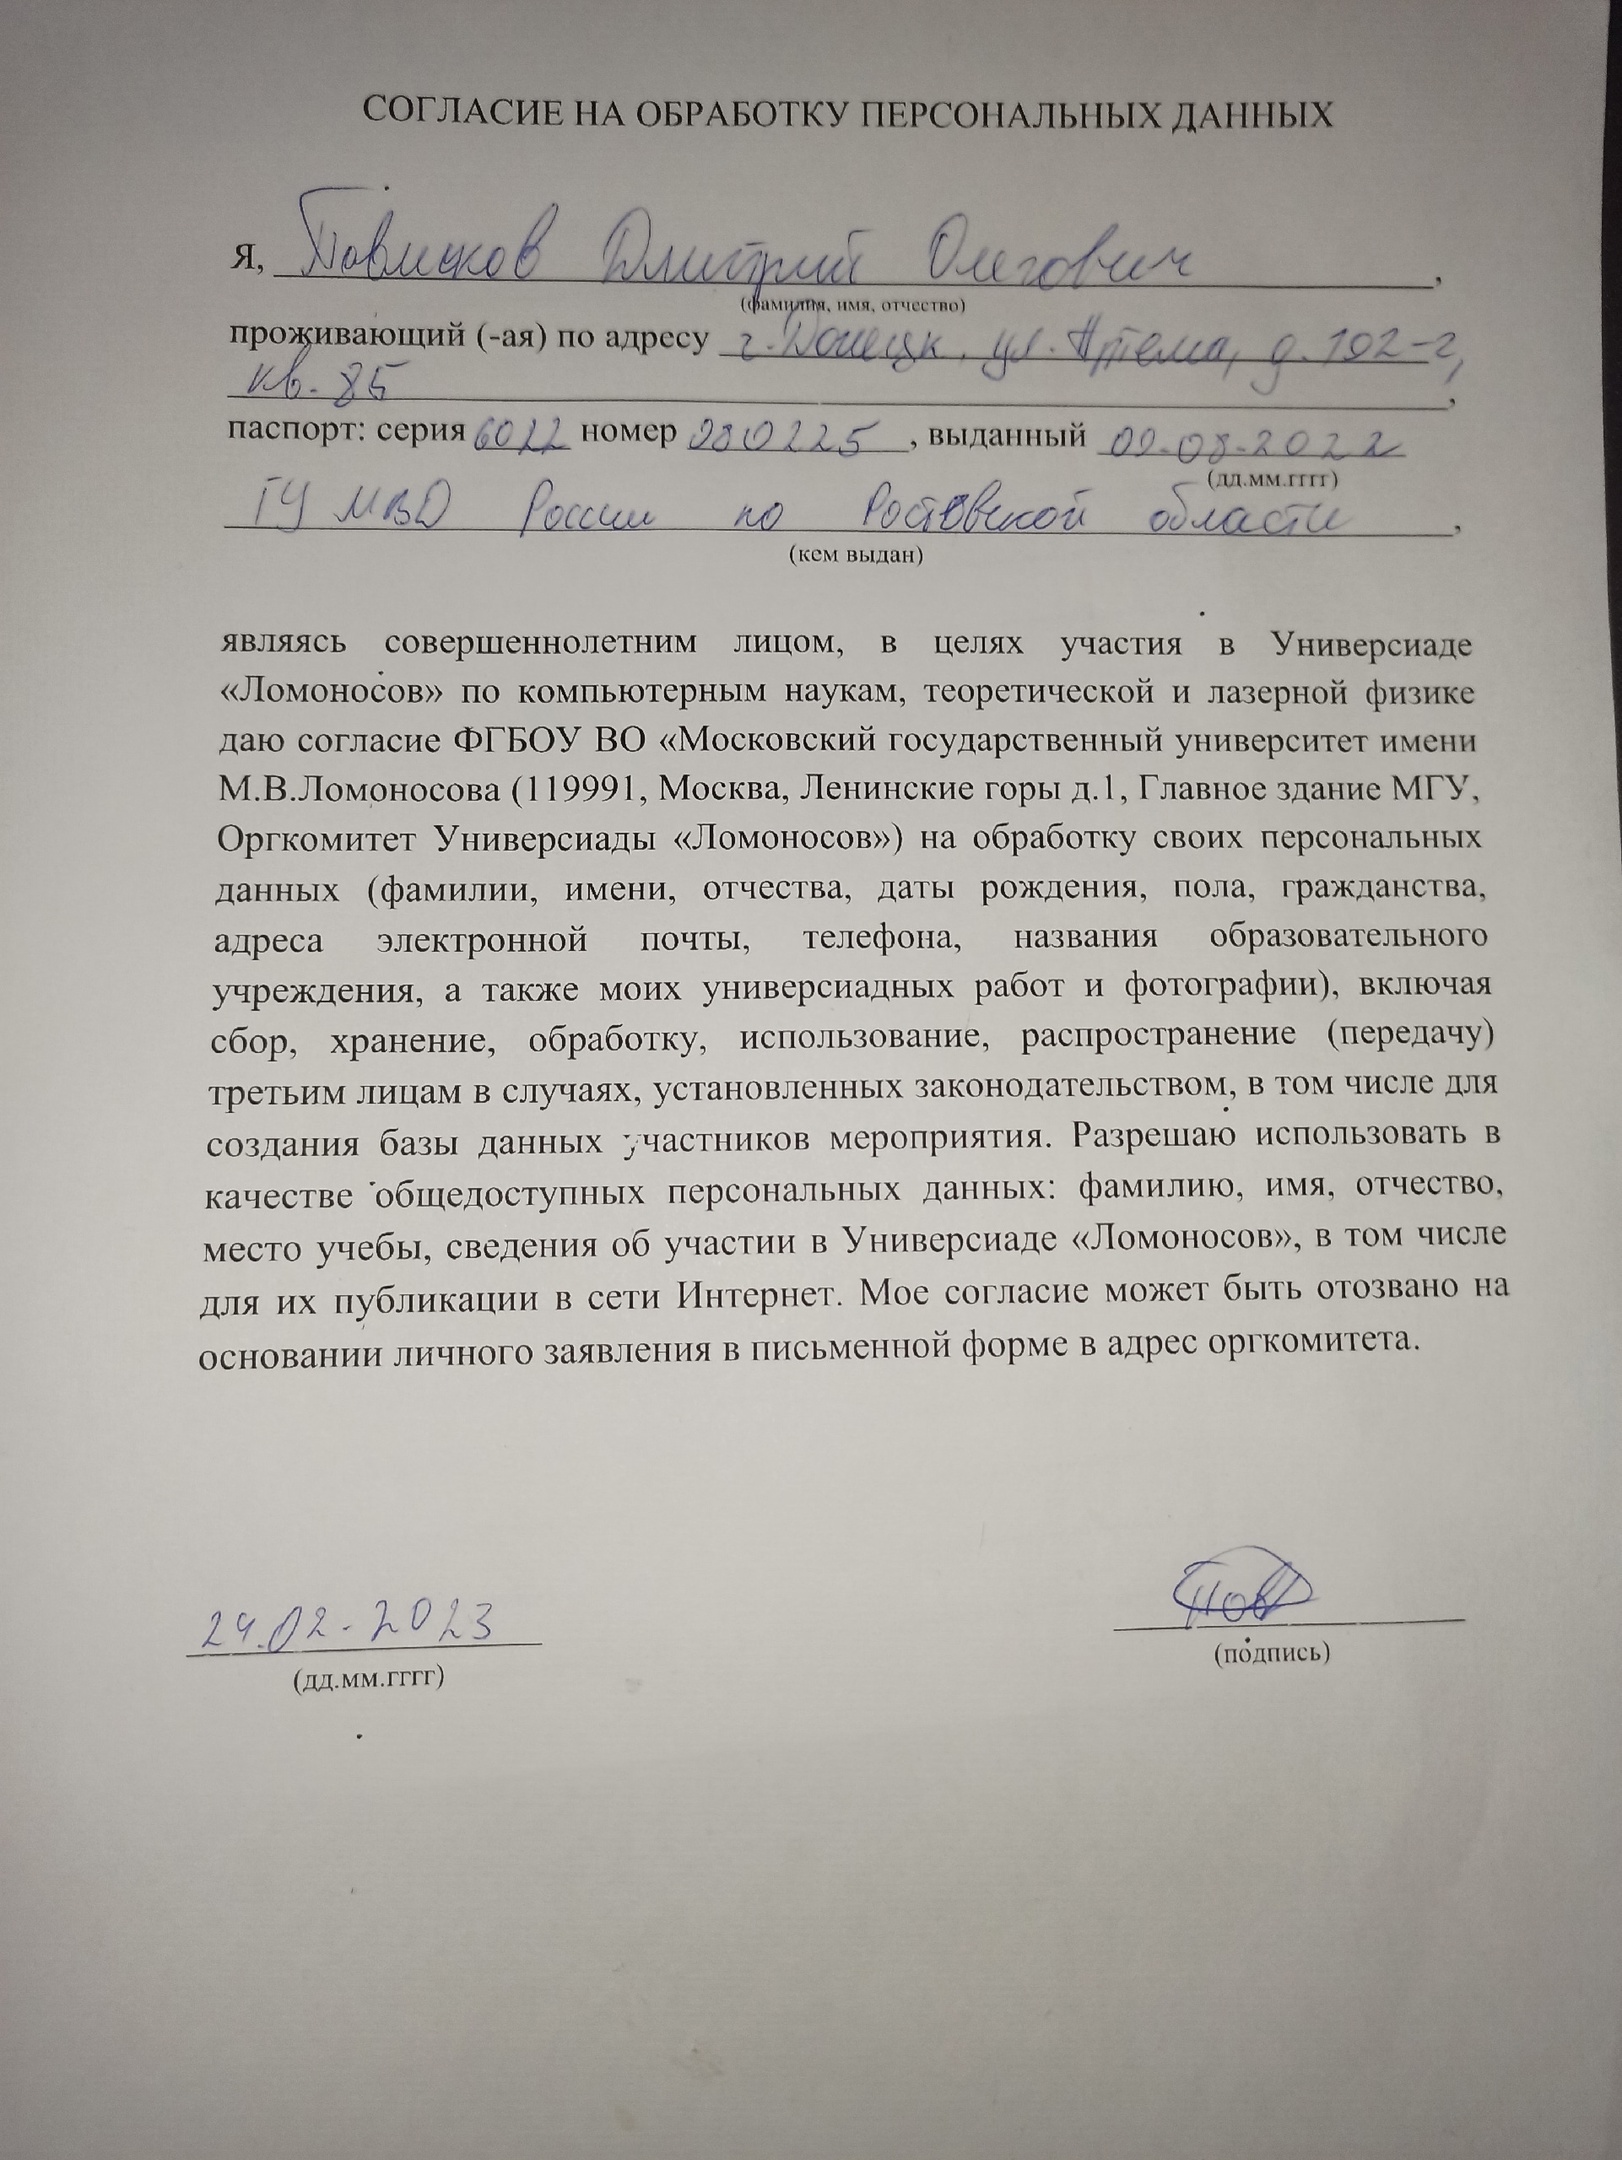 СОГЛАСИЕ НА ОБРАБОТКУ ПЕРСОНАЛЬНЫХ ДАННЫХ
Я, Дмитрий Олегович,
(фамилия, имя, отчество)
проживающий (-ая) по адресу г. Донецк, ул. Артема, д. 102-г,
кв. 85,
паспорт: серия 6022 номер , выданный 09.08.2022
(дд.мм.гггг)
ГУ МВД России по Ростовской области,
(кем выдан)
являясь совершеннолетним лицом, в целях участия в Универсиаде
«Ломоносов» по компьютерным наукам, теоретической и лазерной физике
даю согласие ФГБОУ ВО «Московский государственный университет имени
М.В.Ломоносова (119991, Москва, Ленинские горы д.1, Главное здание МГУ,
Оргкомитет Универсиады «Ломоносов») на обработку своих персональных
данных (фамилии, имени, отчества, даты рождения, пола, гражданства,
адреса электронной почты, телефона, названия образовательного
учреждения, а также моих универсиадных работ и фотографии), включая
сбор, хранение, обработку, использование, распространение (передачу)
третьим лицам в случаях, установленных законодательством, в том числе для
создания базы данных участников мероприятия. Разрешаю использовать в
качестве общедоступных персональных данных: фамилию, имя, отчество,
место учебы, сведения об участии в Универсиаде «Ломоносов», в том числе
для их публикации в сети Интернет. Мое согласие может быть отозвано на
основании личного заявления в письменной форме в адрес оргкомитета.
24.02.2023
(дд.мм.гггг)
(подпись)